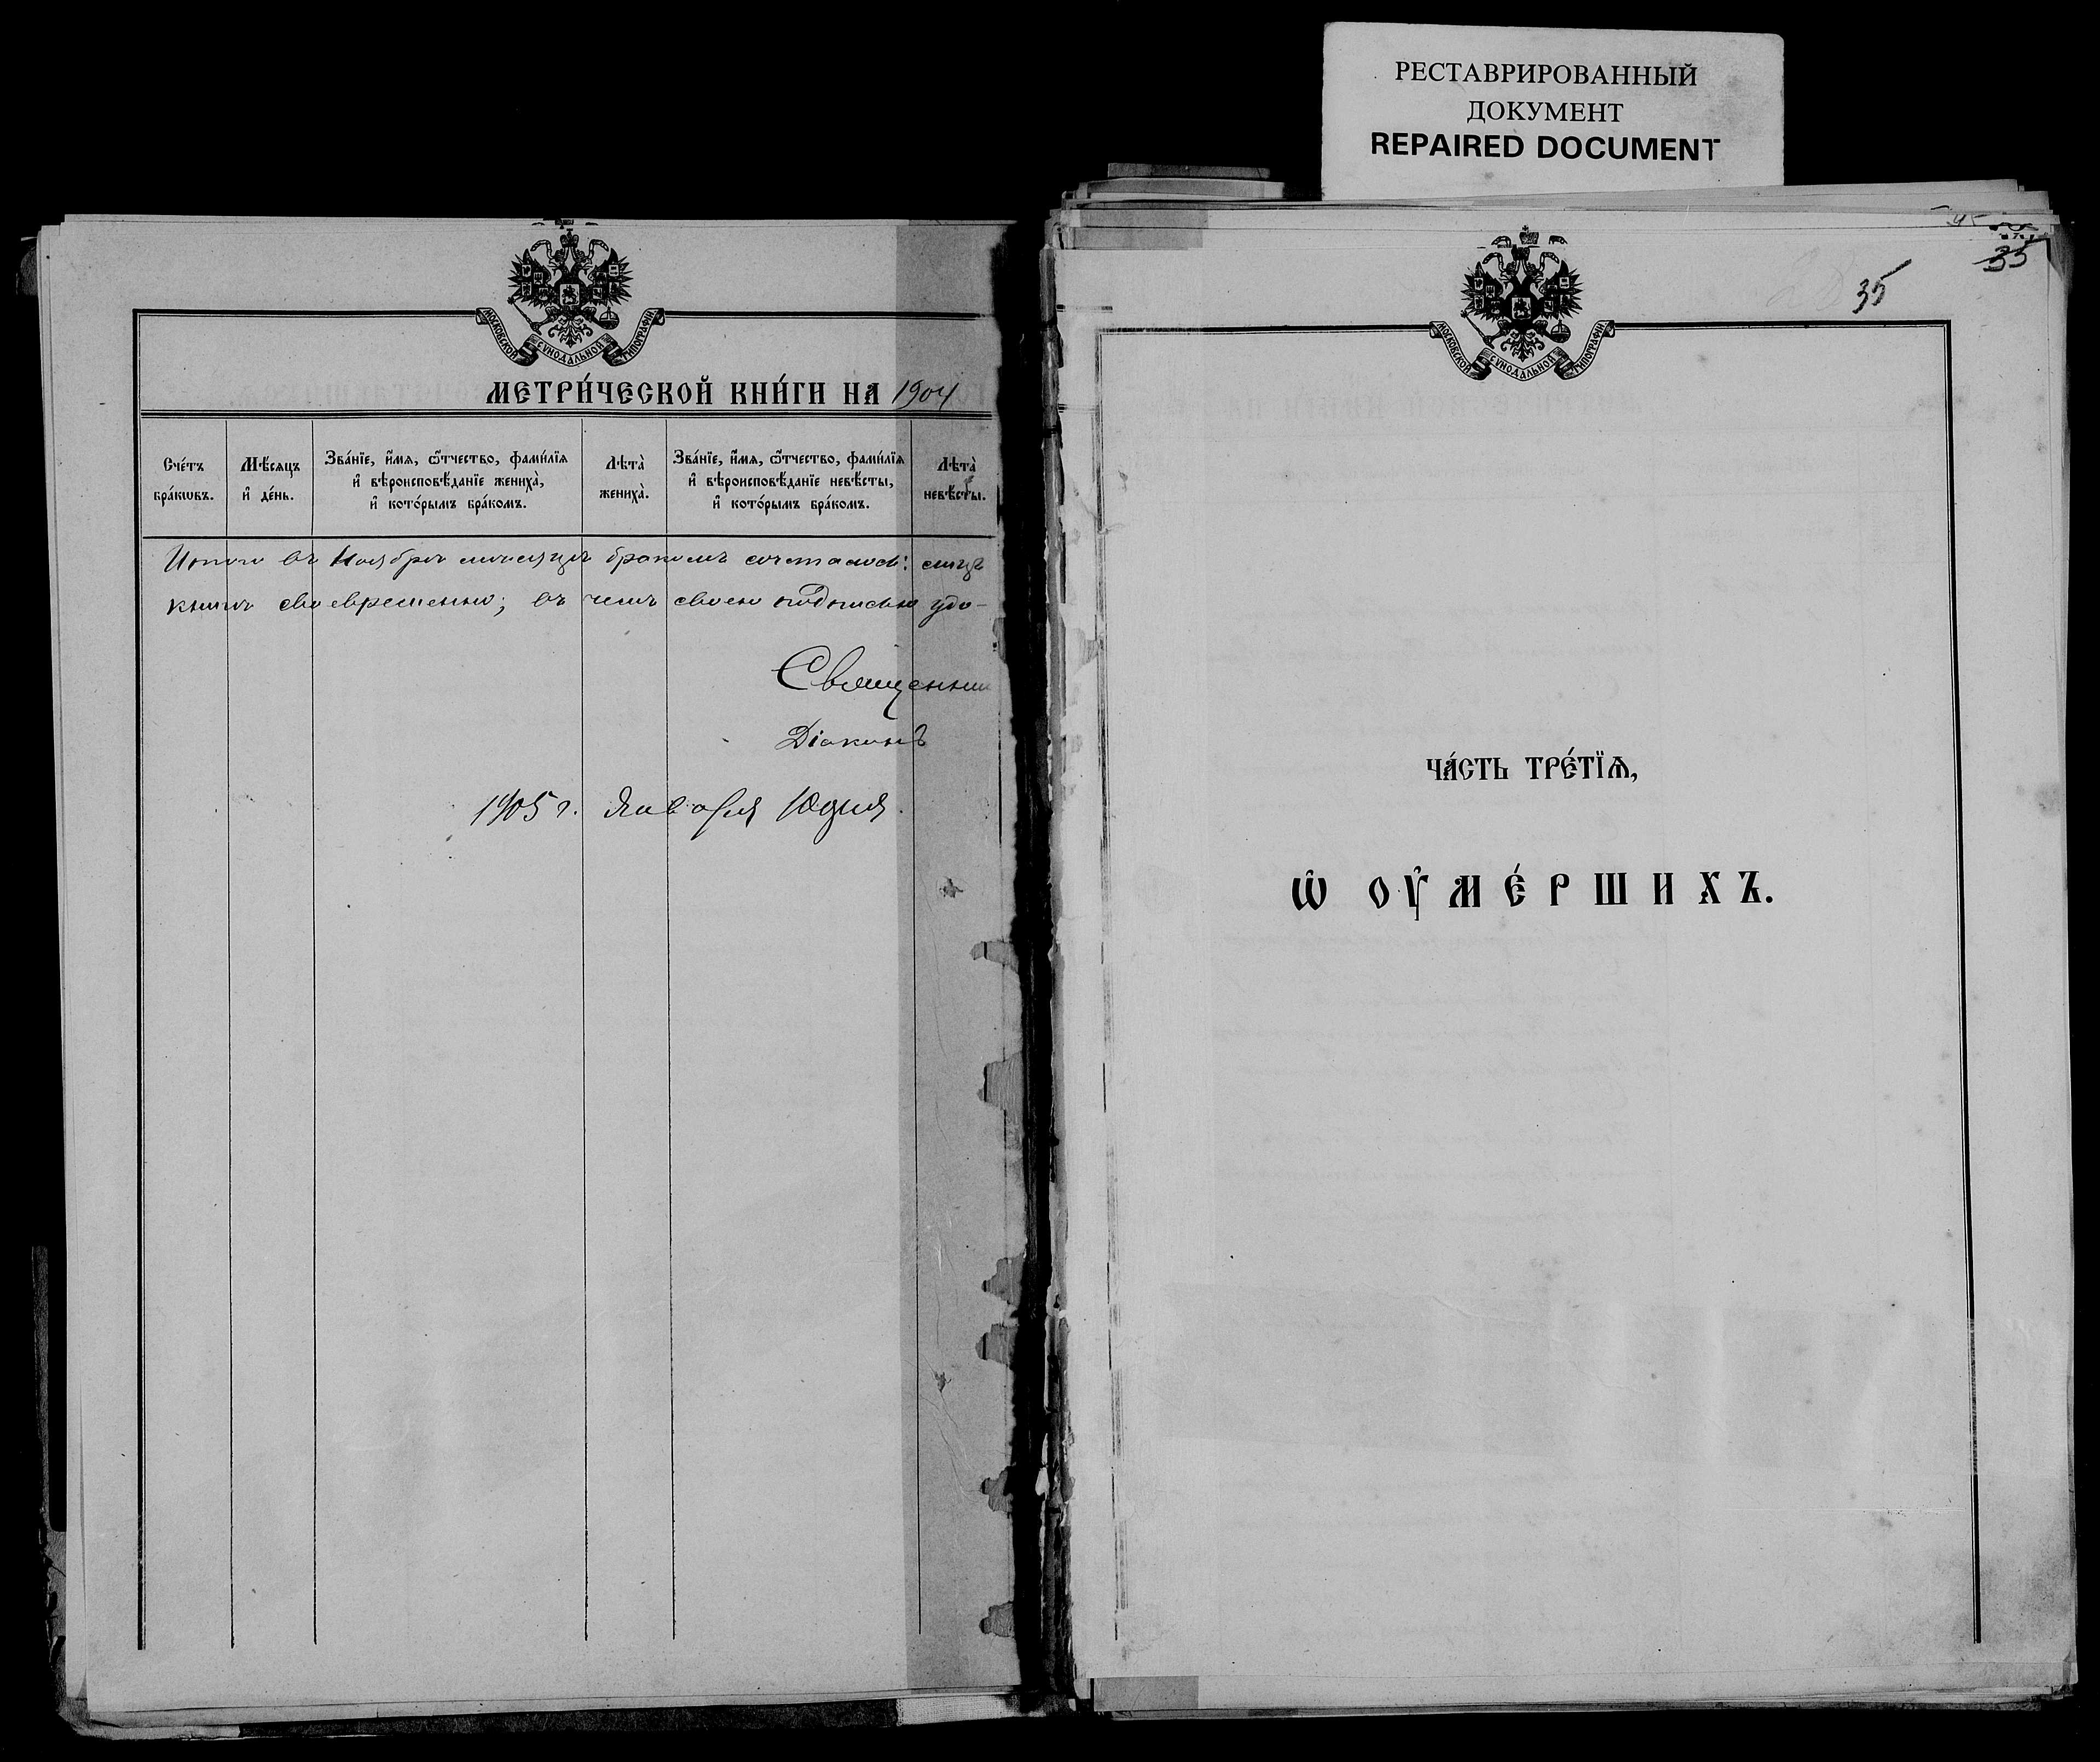 РЕСТАВРИРОВАННЫЙ
ДОКУМЕНТ
REPAIRED DOCUMENT
МОСКОВСКОЙ СѴНОДАЛЬНОЙ ТИПОГРАФІИ
МЕТРИ́ЧЕСКОЙ КНИ́ГИ НА 1904
Сче́тъ бра́кѡвъ.
Мѣ́сяцъ и҆ де́нь.
Зва́нїе, и҆́мя, ѻ҆́тчество, фами́лїя
и҆ вѣроисповѣ́данїе жениха̀,
и҆ кото́рымъ бра́комъ.
Лѣта̀ жениха̀.
Зва́нїе, и҆́мя, ѻ҆́тчество, фами́лїя
и҆ вѣроисповѣ́данїе невѣ́сты,
и҆ кото́рымъ бра́комъ.
Лѣта̀ невѣ́сты.
Итого въ Ноябрѣ мѣсяцѣ бракомъ сочталось:
книги своевременно; въ чемъ своею подписью удо-
Священни
Діаконъ
1905 г. Января 10 дня.
35
35
МОСКОВСКОЙ СѴНОДАЛЬНОЙ ТИПОГРАФІИ
ЧА́СТЬ ТРЕ́ТЇѦ,
Ѡ҆ ОУ҆МЕ́РШИХЪ.